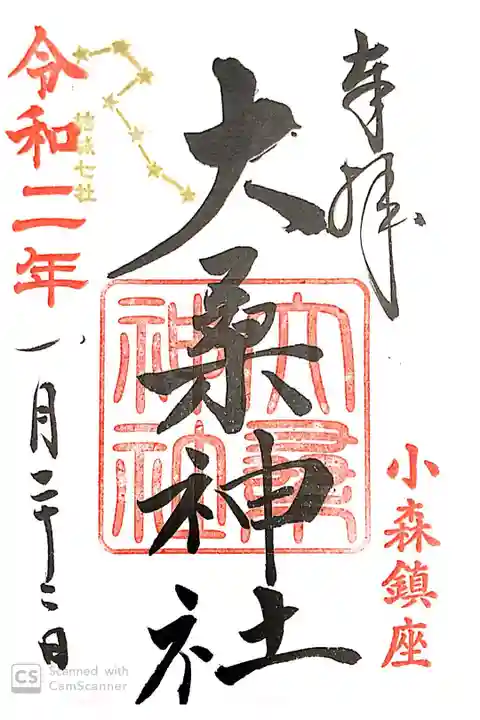 奉拝
小森鎮座
大桑神社
大桑
神社
令和二年
一月二十二日
CS Scanned with
CamScanner